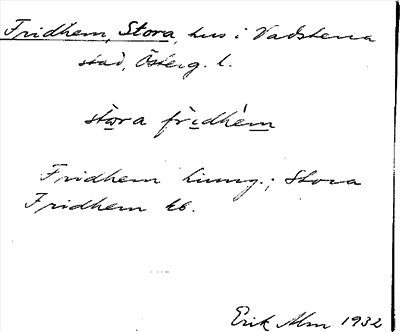 Fridhem, Stora, hus i Vadstena
stad, Österg. l.
stòra frìdhém
Fridhem Liung.; Stora
Fridhem tb.
Erik Alm 1932